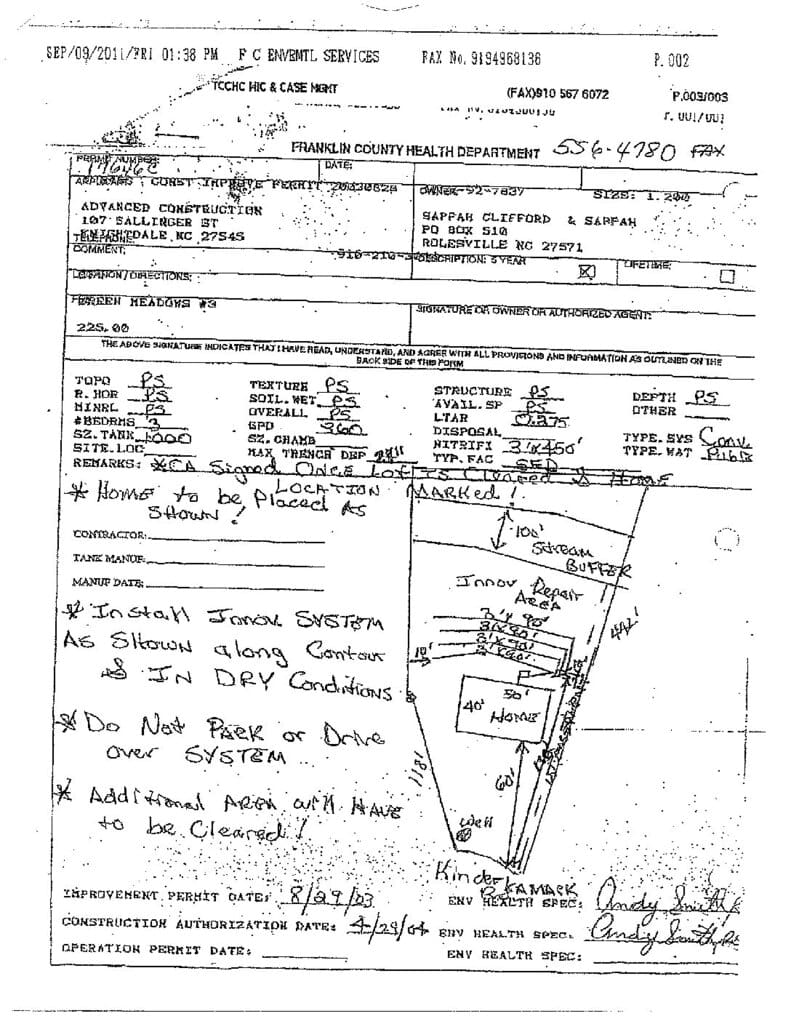 SEP/09/2011/FRI 01:38 PM F C ENVRMTL SERVICES FAX No. 9194968136 P.002
TCCHC HIC & CASE MGMT (FAX)910 567 6072 P.003/003
P. 001/001
FRANKLIN COUNTY HEALTH DEPARTMENT 556-4780 FAX
PERMIT NUMBER: DATE:
CONST IMPROVE PERMIT OWNER-92-7837 SIZE: 1.200
ADVANCED CONSTRUCTION
107 SALLINGER ST
KNIGHTDALE NC 27545
SAPPAH CLIFFORD & SAPPAH
PO BOX 510
ROLESVILLE NC 27571
TELEPHONE:
COMMENT: DESCRIPTION: 5 YEAR LIFETIME:
/DIRECTIONS:
MEADOWS #3
225.00
SIGNATURE OR OWNER OR AUTHORIZED AGENT:
THE ABOVE SIGNATURE INDICATES THAT I HAVE READ, UNDERSTAND, AND AGREE WITH ALL PROVISIONS AND INFORMATION AS OUTLINED ON THE
BACK SIDE OF THIS FORM
TOPO PS TEXTURE PS STRUCTURE PS DEPTH PS
R.HOR PS SOIL.WET PS AVAIL.SP PS OTHER
MINRL PS OVERALL PS LTAR 0.275
#BEDRMS 3 GPD 360 DISPOSAL TYPE.SYS Conv
SZ.TANK 1000 SZ.CHAMB NITRIFI 3'x450' TYPE.WAT Public
SITE.LOC MAX TRENCH DEP 24" TYP.FAC SFD
REMARKS: *CA Signed ONCE Lot IS Cleared & HOME
LOCATION MARKed!
* Home to be Placed As
SHOWN!
CONTRACTOR:
TANK MANUF:
MANUF DATE:
* Install Innov SYSTEM
As SHOWN along Contour
& IN DRY Conditions
* Do Not PARK or Drive
over SYSTEM
* Additional AREA will HAVE
to be Cleared!
100'
Stream
BUFFER
Innov Repair
AREA
3'x 90'
3'x 90'
3'x 90'
3'x 90'
10'
50'
40'
HOME
60'
118'
Well
IMPROVEMENT PERMIT DATE: 8/29/03 ENV HEALTH SPEC: Andy Smith
CONSTRUCTION AUTHORIZATION DATE: 4/29/04 ENV HEALTH SPEC. Andy Smith
OPERATION PERMIT DATE: ENV HEALTH SPEC: